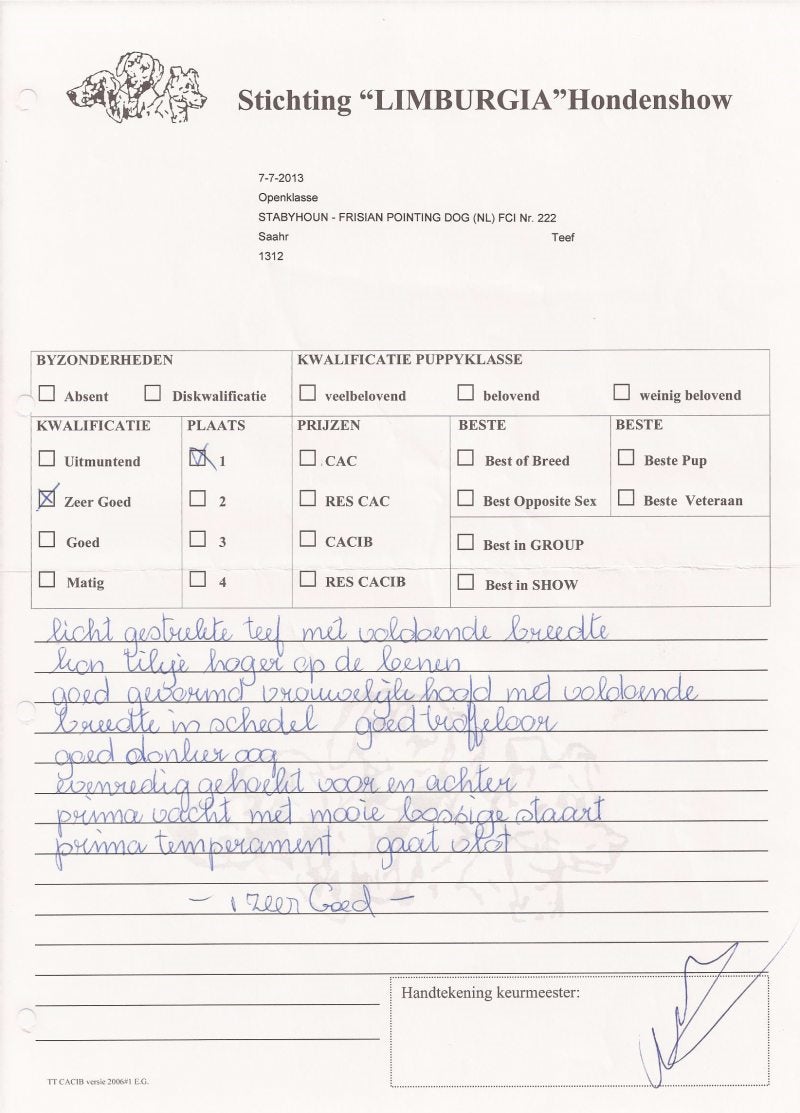 Stichting “LIMBURGIA”Hondenshow
7-7-2013
Openklasse
STABYHOUN - FRISIAN POINTING DOG (NL) FCI Nr. 222
Saahr Teef
1312
BYZONDERHEDEN KWALIFICATIE PUPPYKLASSE
Absent Diskwalificatie veelbelovend belovend weinig belovend
KWALIFICATIE PLAATS PRIJZEN BESTE BESTE
Uitmuntend 1 CAC Best of Breed Beste Pup
Zeer Goed 2 RES CAC Best Opposite Sex Beste Veteraan
Goed 3 CACIB Best in GROUP
Matig 4 RES CACIB Best in SHOW
licht gestrekte teef met voldoende breedte
kon tikje hoger op de benen
goed gevormd vrouwelijk hoofd met voldoende
breedte in schedel goed troffeloor
goed donker oog
evenredig gehoekt voor en achter
prima vacht met mooie bossige staart
prima temperament gaat vlot
- 1 zeer Goed -
Handtekening keurmeester:
TT CACIB versie 2006#1 E.G.